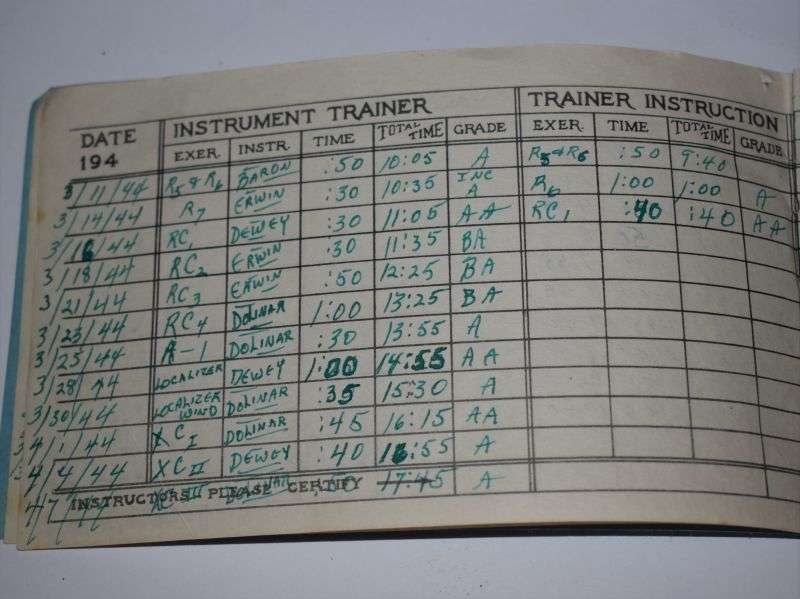 INSTRUMENT TRAINER TRAINER INSTRUCTION
DATE 194 EXER. INSTR. TIME TOTAL TIME GRADE EXER. TIME TOTAL TIME GRADE
3/11/44 R5 & R6 BARON :50 10:05 A R5 & R6 :50 9:40
3/14/44 R7 ERWIN :30 10:35 INC A R6 1:00 1:00 A
3/16/44 RC1 DEWEY :30 11:05 AA RC1 :40 :40 AA
3/18/44 RC2 ERWIN :30 11:35 BA
3/21/44 RC3 ERWIN :50 12:25 BA
3/23/44 RC4 DOLINAR 1:00 13:25 BA
3/25/44 A-1 DOLINAR :30 13:55 A
3/28/44 LOCALIZER DEWEY 1:00 14:55 AA
3/30/44 LOCALIZER WIND DOLINAR :35 15:30 A
4/1/44 XC I DOLINAR :45 16:15 AA
4/4/44 XC II DEWEY :40 16:55 A
4/7/44 DOLINAR :50 17:45 A
INSTRUCTORS PLEASE CERTIFY